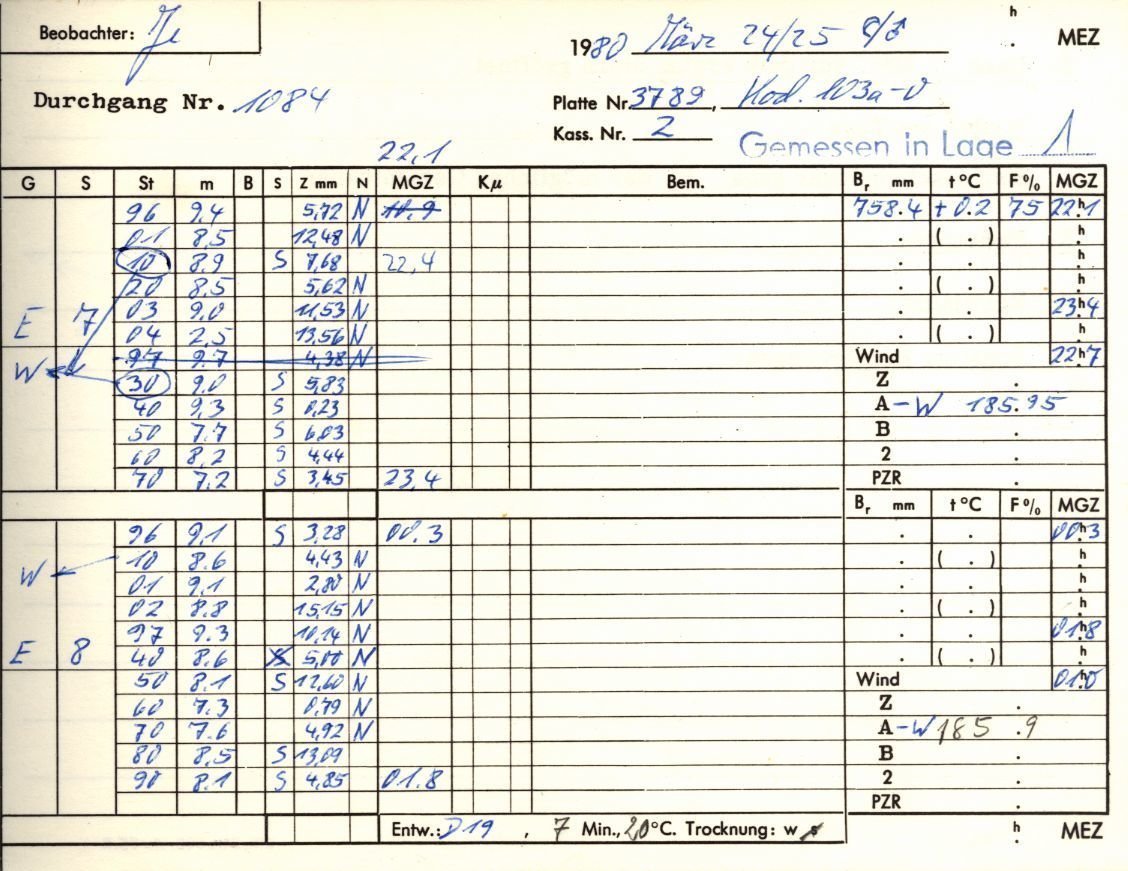 Beobachter: Je
1980 März 24/25 h . MEZ
Durchgang Nr. 1084
Platte Nr 3789, Kod. 103a-O
Kass. Nr. 2
Gemessen in Lage 1
22,1
G S St m B S Z mm N MGZ Kµ Bem. Br mm t °C F % MGZ
96 9.4 5,72 N 11.9 758.4 +0.2 75 22h1
01 8,5 12,48 N . ( . ) h
10 8.9 S 7,68 22,4 . . h
20 8.5 5,62 N . ( . ) h
E 7 03 9,0 11,53 N . . 23h4
04 2,5 13,56 N . ( . ) h
W 97 9.7 4,38 N Wind 22h7
30 9.0 S 5,83 Z .
40 9,3 S 0,23 A -W 185.95
50 7.7 S 6,03 B .
60 8,2 S 4,44 2 .
70 7.2 S 3,45 23,4 PZR .
Br mm t °C F % MGZ
96 9.1 S 3,28 00.3 . . 00h3
W 10 8.6 4,43 N . ( . ) h
01 9.1 2,80 N . . h
02 8.8 15,15 N . ( . ) h
97 9.3 10,14 N . . 01h8
E 8 40 8.6 5,00 N . ( . ) h
50 8.1 S 12,60 N Wind 01h0
60 7.3 0,79 N Z .
70 7.6 4,92 N A -W 185 .9
80 8,5 S 13,09 B .
90 8.1 S 4,85 01.8 2 .
PZR .
Entw.: D19 , 7 Min., 20°C. Trocknung: w s h . MEZ